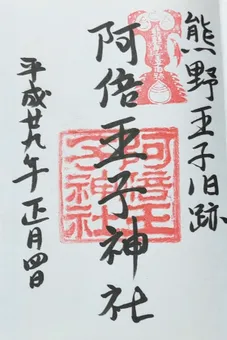 熊野王子旧跡
阿倍王子神社
阿倍王
子神社
平成廿九年正月四日